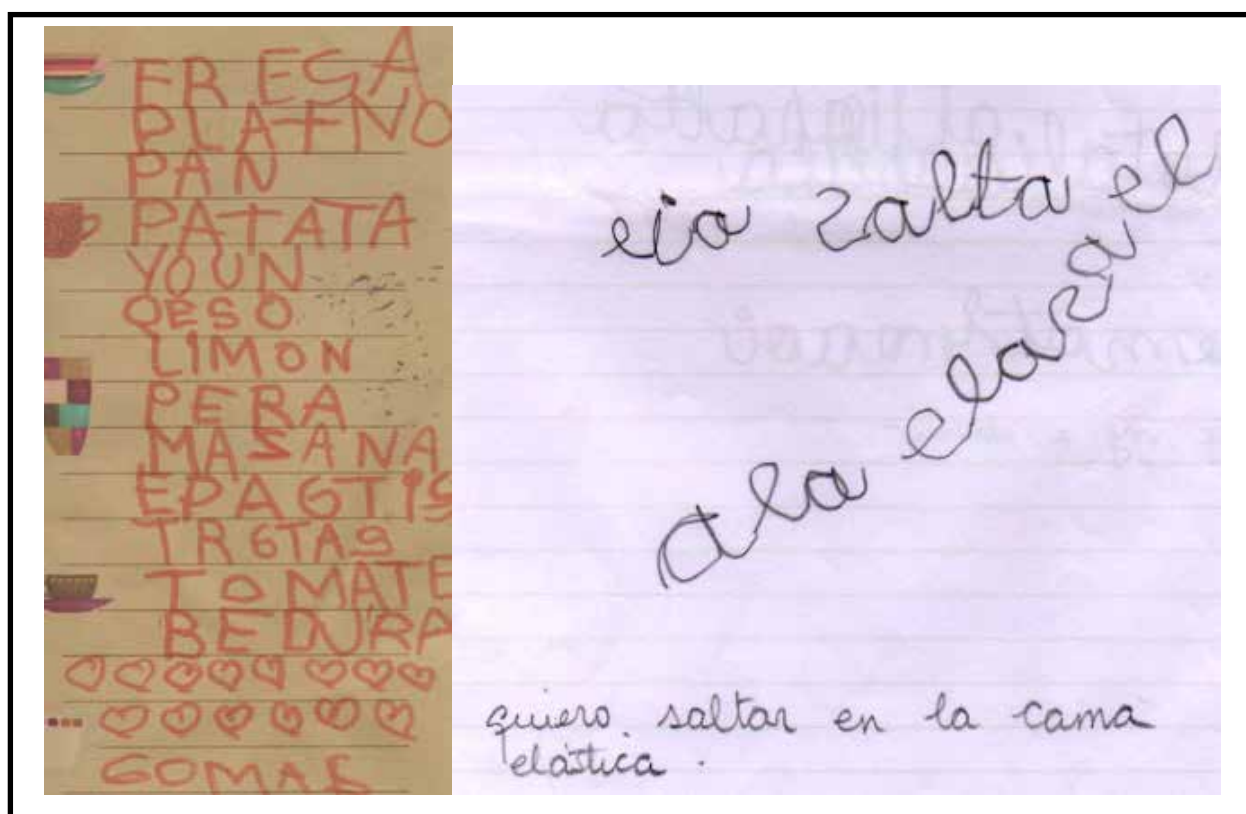 FRESA
PLATNO
PAN
PATATA
YOUN
QESO
LIMON
PERA
MASANA
EPAGTIS
TRGTAS
TOMATE
BEDURA
GOMAS
eio zalta el
a la elaza
quiero saltar en la cama
elástica.